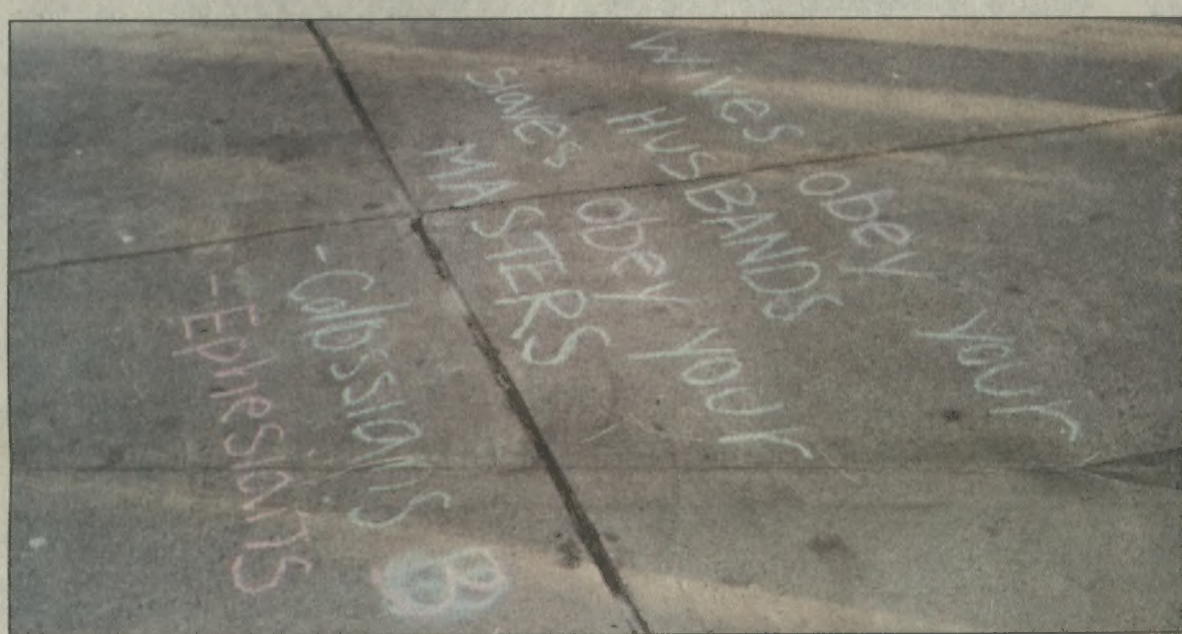 Wives obey your
HUSBANDS
Slaves obey your
MASTERS
-Colossians
-Ephesians